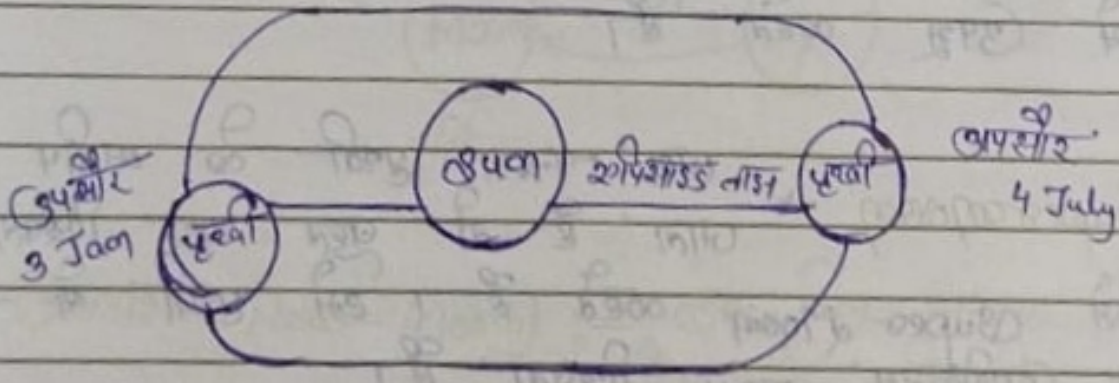 उपसौर
3 Jan
पृथ्वी
एपिसाइड लाइन
पृथ्वी
अपसौर
4 July